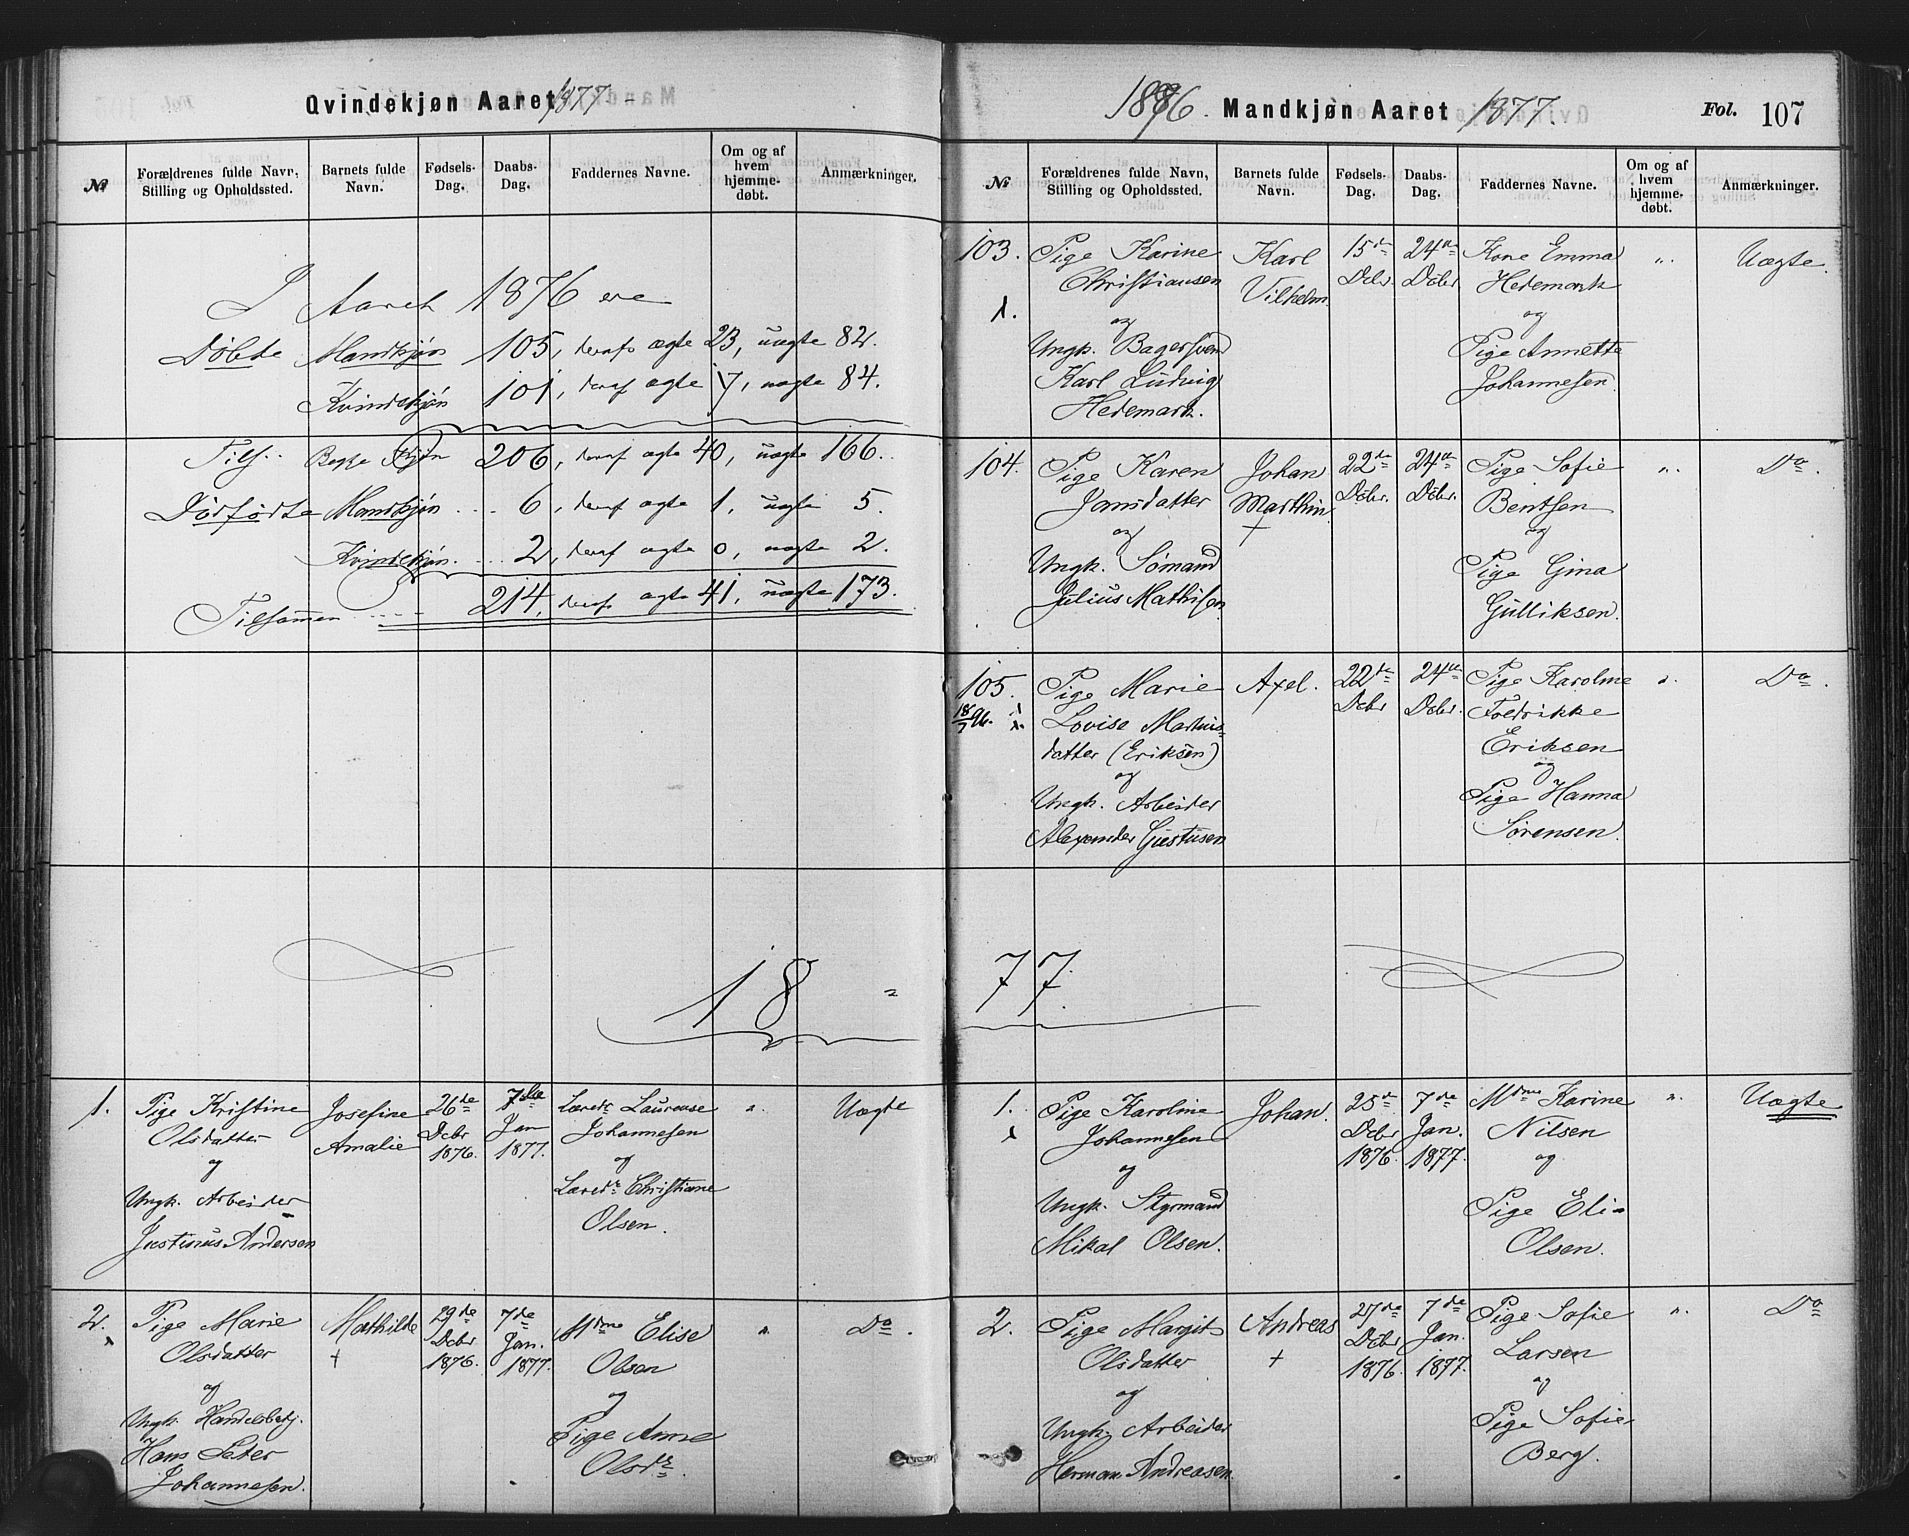 Qvindekjøn Aaret 1877.
№
Forældrenes fulde Navn,
Stilling og Opholdssted.
Barnets fulde
Navn.
Fødsels-
Dag.
Daabs-
Dag.
Faddernes Navne.
Om og af
hvem
hjemme-
døbt.
Anmærkninger.
I Aaret 1876 ere
Døbte Mandkjøn 105, deraf ægte 23, uægte 82.
Kvindekjøn 101, deraf ægte 17, uægte 84.
Tils. Begge Kjøn 206, deraf ægte 40, uægte 166.
Dødfødte Mandkjøn 6, deraf ægte 1, uægte 5.
Kvindekjøn 2, deraf ægte 0, uægte 2.
Tilsammen 214, deraf ægte 41, uægte 173.
18
1.
Pige Kristine
Olsdatter
og
Ungk. Arbeider
Justinus Andersen
Josefine
Amalie
26de
Dcbr
1876.
7de
Jan
1877.
Læreds Laurense
Johannesen
og
Læreds Christiane
Olsen.
"
Uægte
2.
Pige Marie
Olsdatter
og
Ungk. Handelsbetj.
Hans Peter
Johannesen.
Mathilde
+
29de
Dcbr
1876.
7de
Jan.
1877.
Mdme Elise
Olsen
og
Pige Anne
Olsdr.
"
Do.
1876. Mandkjøn Aaret 1877. Fol. 107
№
Forældrenes fulde Navn,
Stilling og Opholdssted.
Barnets fulde
Navn.
Fødsels-
Dag.
Daabs-
Dag.
Faddernes Navne.
Om og af
hvem
hjemme-
døbt.
Anmærkninger.
103.
Pige Karine
Christiansen
og
Ungk. Bagersvend
Karl Ludvig
Hedemark.
Karl
Vilhelm
15de
Dcbr.
24de
Dcbr
Kone Emma
Hedemark
og
Pige Annette
Johannesen.
"
Uægte.
104.
Pige Karen
Jansdatter
og
Ungk. Sømand
Julius Mathisen
Johan
Marthin
+
22de
Dcbr.
24de
Dcbr.
Pige Sofie
Bentsen
og
Pige Gina
Gulliksen.
"
Do.
105.
18/7 96.
Pige Marie
Lovise Martins-
datter (Eriksen)
og
Ungk. Arbeider
Alexander Gustusen
Axel.
22de
Dcbr
24de
Dcbr.
Pige Karoline
Fredrikke
Eriksen
og
Pige Hanna
Sørensen.
"
Do.
77.
1.
Pige Karoline
Johannesen
og
Ungk. Styrmand
Mikal Olsen.
Johan.
25de
Dcbr
1876.
7de
Jan.
1877.
Mdme Karine
Nilsen
og
Pige Elie
Olsen.
"
Uægte
2.
Pige Margit
Olsdatter
og
Ungk. Arbeider
Herman Andreasen.
Andreas
+
27de
Dcbr
1876.
7de
Jan.
1877.
Pige Sofie
Larsen
og
Pige Sofie
Berg.
"
Do